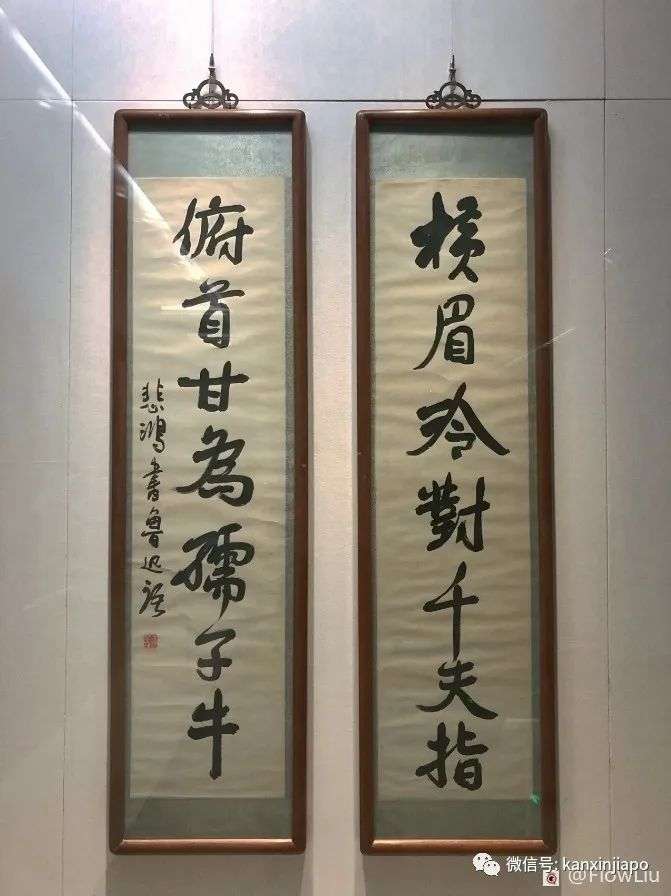 横眉冷對千夫指
俯首甘為孺子牛
悲鴻書魯迅語
微信号: kanxinjiapo
@FlowLiu